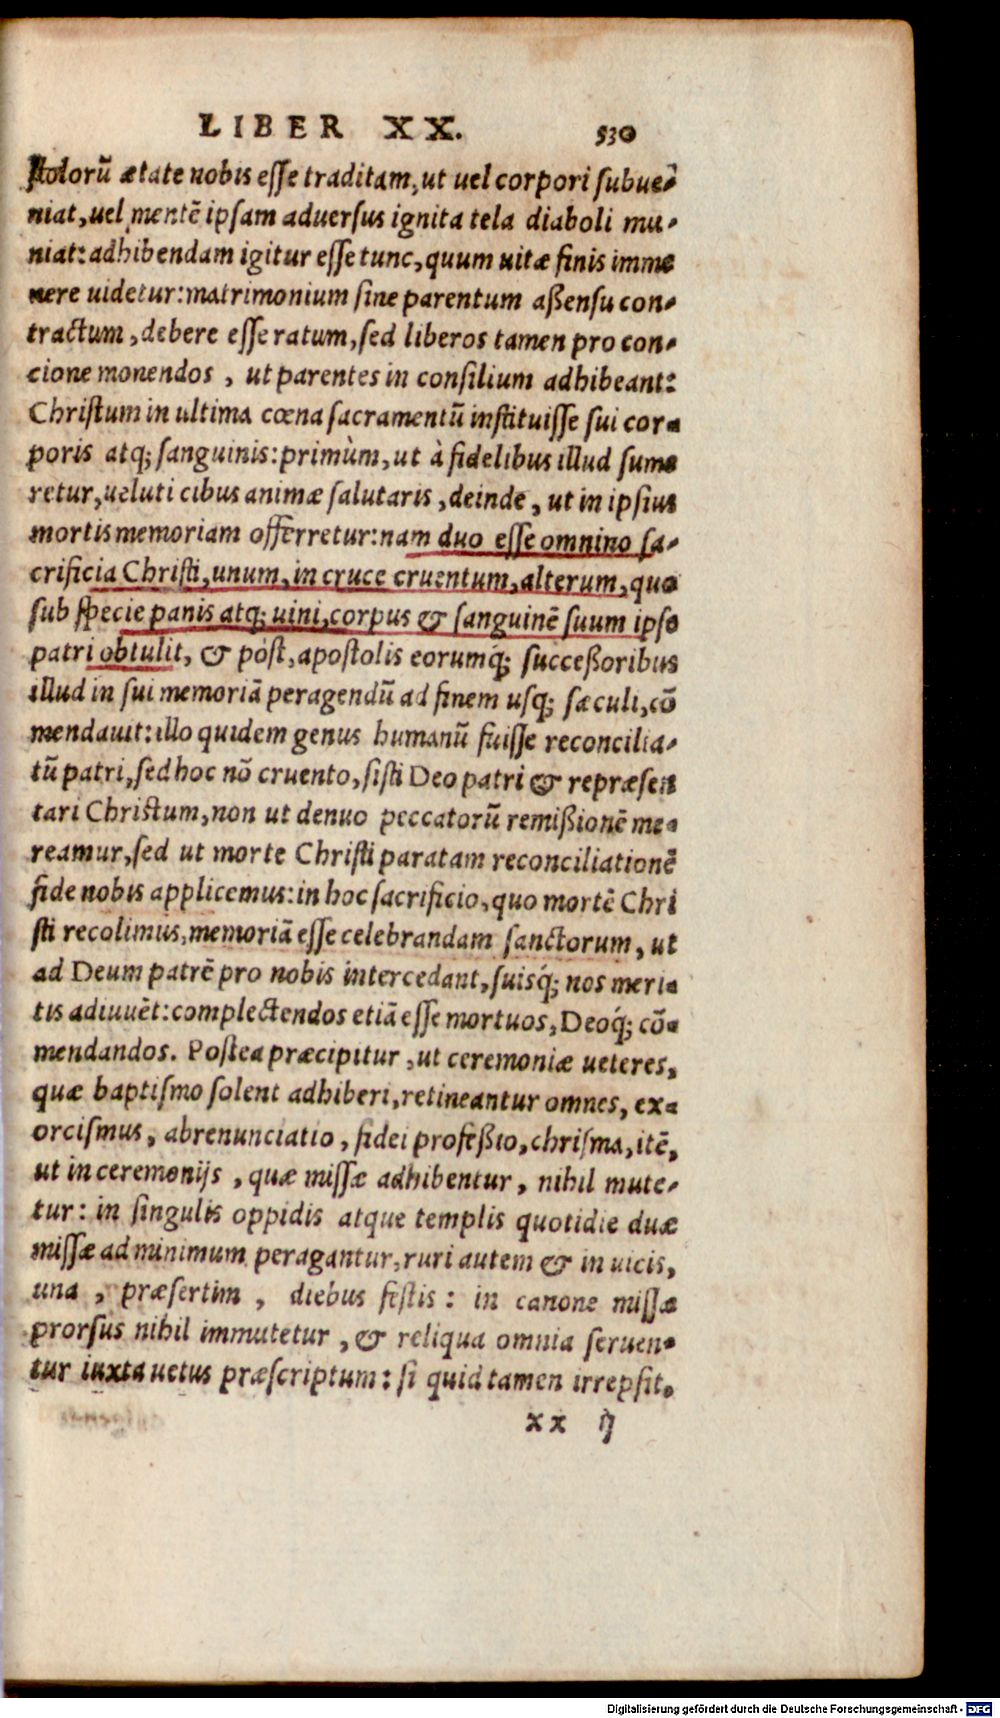 LIBER XX. 530
ſtolorū ætate nobis eſſe traditam, ut uel corpori ſubue-
niat, uel mentē ipſam aduerſus ignita tela diaboli mu-
niat: adhibendam igitur eſſe tunc, quum uitæ finis imme
nere uidetur: matrimonium ſine parentum aßenſu con-
tractum, debere eſſe ratum, ſed liberos tamen pro con-
cione monendos, ut parentes in conſilium adhibeant:
Chriſtum in ultima cœna ſacramentū inſtituiſſe ſui cor-
poris atq; ſanguinis: primùm, ut à fidelibus illud ſume
retur, ueluti cibus animæ ſalutaris, deinde, ut in ipſius
mortis memoriam offerretur: nam duo eſſe omnino ſa-
crificia Chriſti, unum, in cruce cruentum, alterum, quo
ſub ſpecie panis atq; uini, corpus & ſanguinē ſuum ipſe
patri obtulit, & pòſt, apoſtolis eorumq́; ſucceßoribus
illud in ſui memoriā peragendū ad finem uſq; ſæculi, cō
mendauit: illo quidem genus humanū fuiſſe reconcilia-
tū patri, ſed hoc nō cruento, ſiſti Deo patri & repræſen
tari Chriſtum, non ut denuo peccatorū remißionē me-
reamur, ſed ut morte Chriſti paratam reconciliationē
fide nobis applicemus: in hoc ſacrificio, quo mortē Chri
ſti recolimus, memoriā eſſe celebrandam ſanctorum, ut
ad Deum patrē pro nobis intercedant, ſuisq́; nos meri-
tis adiuuēt: complectendos etiā eſſe mortuos, Deoq́; cō-
mendandos. Poſtea præcipitur, ut ceremoniæ ueteres,
quæ baptiſmo ſolent adhiberi, retineantur omnes, ex-
orciſmus, abrenunciatio, fidei profeßio, chriſma, itē,
ut in ceremonijs, quæ miſſæ adhibentur, nihil mute-
tur: in ſingulis oppidis atque templis quotidie duæ
miſſæ ad minimum peragantur, ruri autem & in uicis,
una, præſertim, diebus feſtis: in canone miſſæ
prorſus nihil immutetur, & reliqua omnia ſeruen-
tur iuxta uetus præſcriptum: ſi quid tamen irrepſit,
xx ij
Digitalisierung gefördert durch die Deutsche Forschungsgemeinschaft - DFG